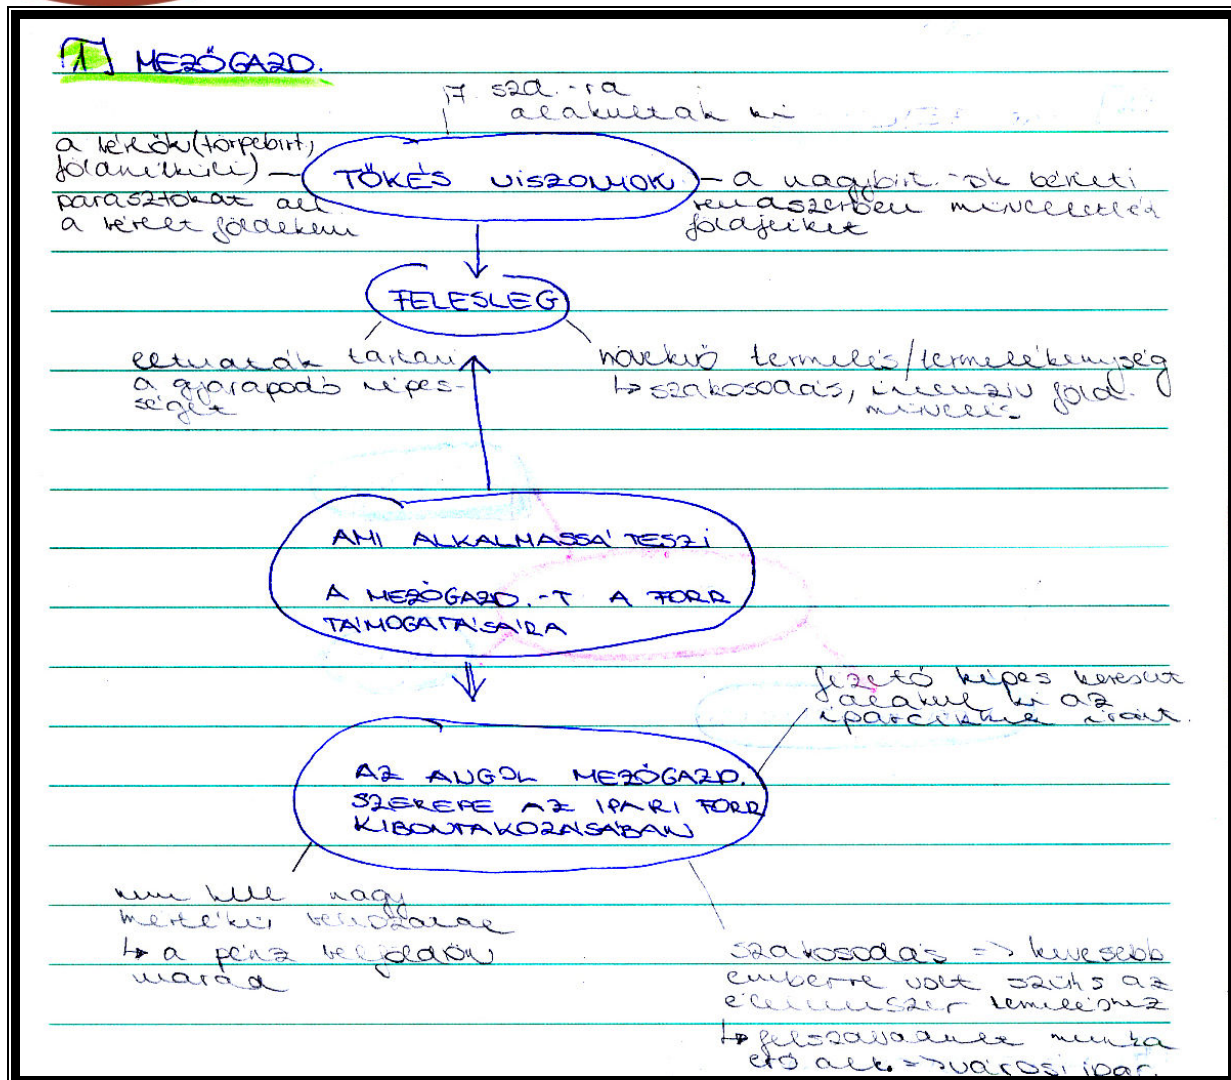 1 MEZŐGAZD.
17. szd.-ra
alakultak ki
a bérlők (törpebirt.,
földnélküli)
parasztokat alk.
a bérelt földeken
TŐKÉS VISZONYOK
a nagybirt.-ok bérleti
rendszerben műveltették
földjeiket
FELESLEG
eltudták tartani
a gyarapodó népes-
séget
növekvő termelés/termelékenység
↳ szakosodás, intenzív föld.
művelés
AMI ALKALMASSÁ TESZI
A MEZŐGAZD.-T A FORR
TÁMOGATÁSÁRA
fizető képes kereslet
alakul ki az
iparcikkek iránt.
AZ ANGOL MEZŐGAZD.
SZEREPE AZ IPARI FORR
KIBONTAKOZÁSÁBAN
nem kell nagy
mértékű behozatal
↳ a pénz belföldön
marad
szakosodás => kevesebb
emberre volt szüks az
élelmiszer termeléshez
↳ felszabaduló munka
erő alk. => városi ipar.